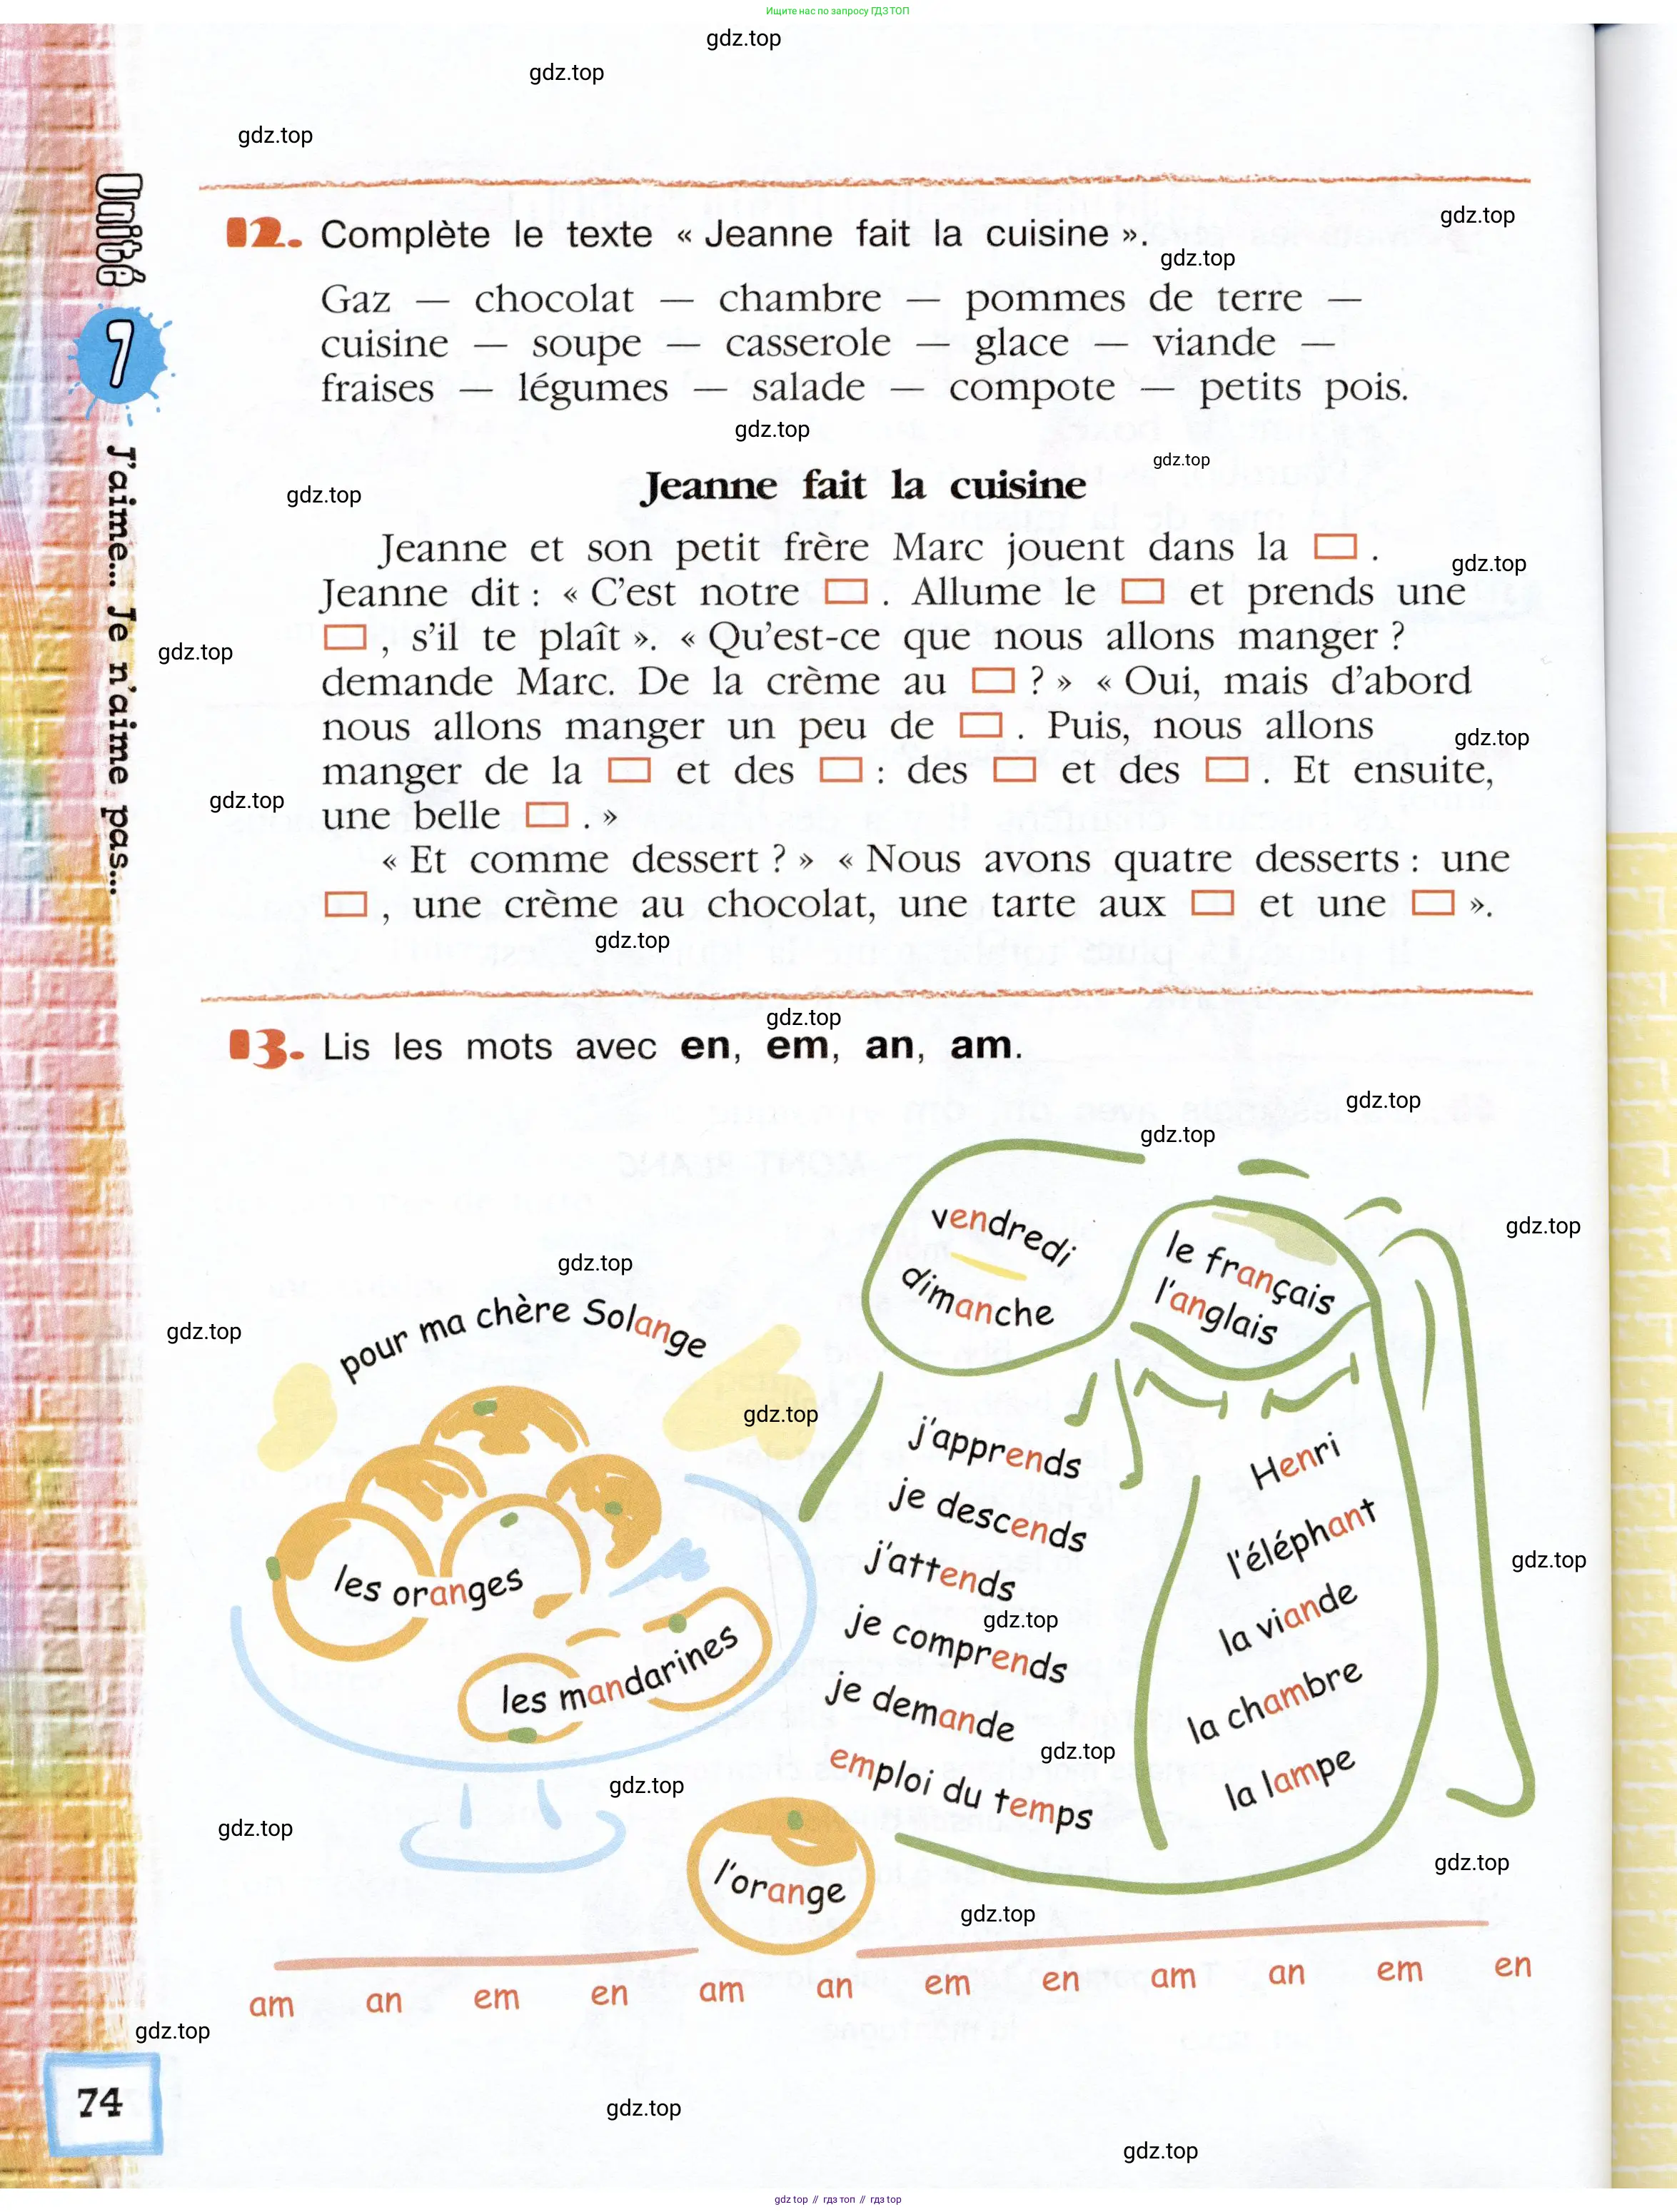 Ищите нас по запросу ГДЗ ТОП
gdz.top
gdz.top
gdz.top
Unité 7 J'aime... Je n'aime pas...
gdz.top
12. Complète le texte « Jeanne fait la cuisine ».
gdz.top
Gaz — chocolat — chambre — pommes de terre —
cuisine — soupe — casserole — glace — viande —
fraises — légumes — salade — compote — petits pois.
gdz.top
gdz.top
Jeanne fait la cuisine
gdz.top
Jeanne et son petit frère Marc jouent dans la ▭ .
gdz.top
Jeanne dit : « C'est notre ▭ . Allume le ▭ et prends une
▭ , s'il te plaît ». « Qu'est-ce que nous allons manger ?
gdz.top
demande Marc. De la crème au ▭ ? » « Oui, mais d'abord
nous allons manger un peu de ▭ . Puis, nous allons
gdz.top
manger de la ▭ et des ▭ : des ▭ et des ▭ . Et ensuite,
gdz.top
une belle ▭ . »
« Et comme dessert ? » « Nous avons quatre desserts : une
▭ , une crème au chocolat, une tarte aux ▭ et une ▭ ».
gdz.top
gdz.top
13. Lis les mots avec en, em, an, am.
gdz.top
gdz.top
gdz.top
gdz.top
gdz.top
pour ma chère Solange
gdz.top
les oranges
les mandarines
vendredi
dimanche
le français
l'anglais
j'apprends
je descends
j'attends
gdz.top
je comprends
je demande
gdz.top
emploi du temps
Henri
l'éléphant
gdz.top
la viande
la chambre
la lampe
gdz.top
gdz.top
gdz.top
l'orange
gdz.top
am an em en am an em en am an em en
gdz.top
74
gdz.top
gdz.top
gdz top // гдз топ // гдз top